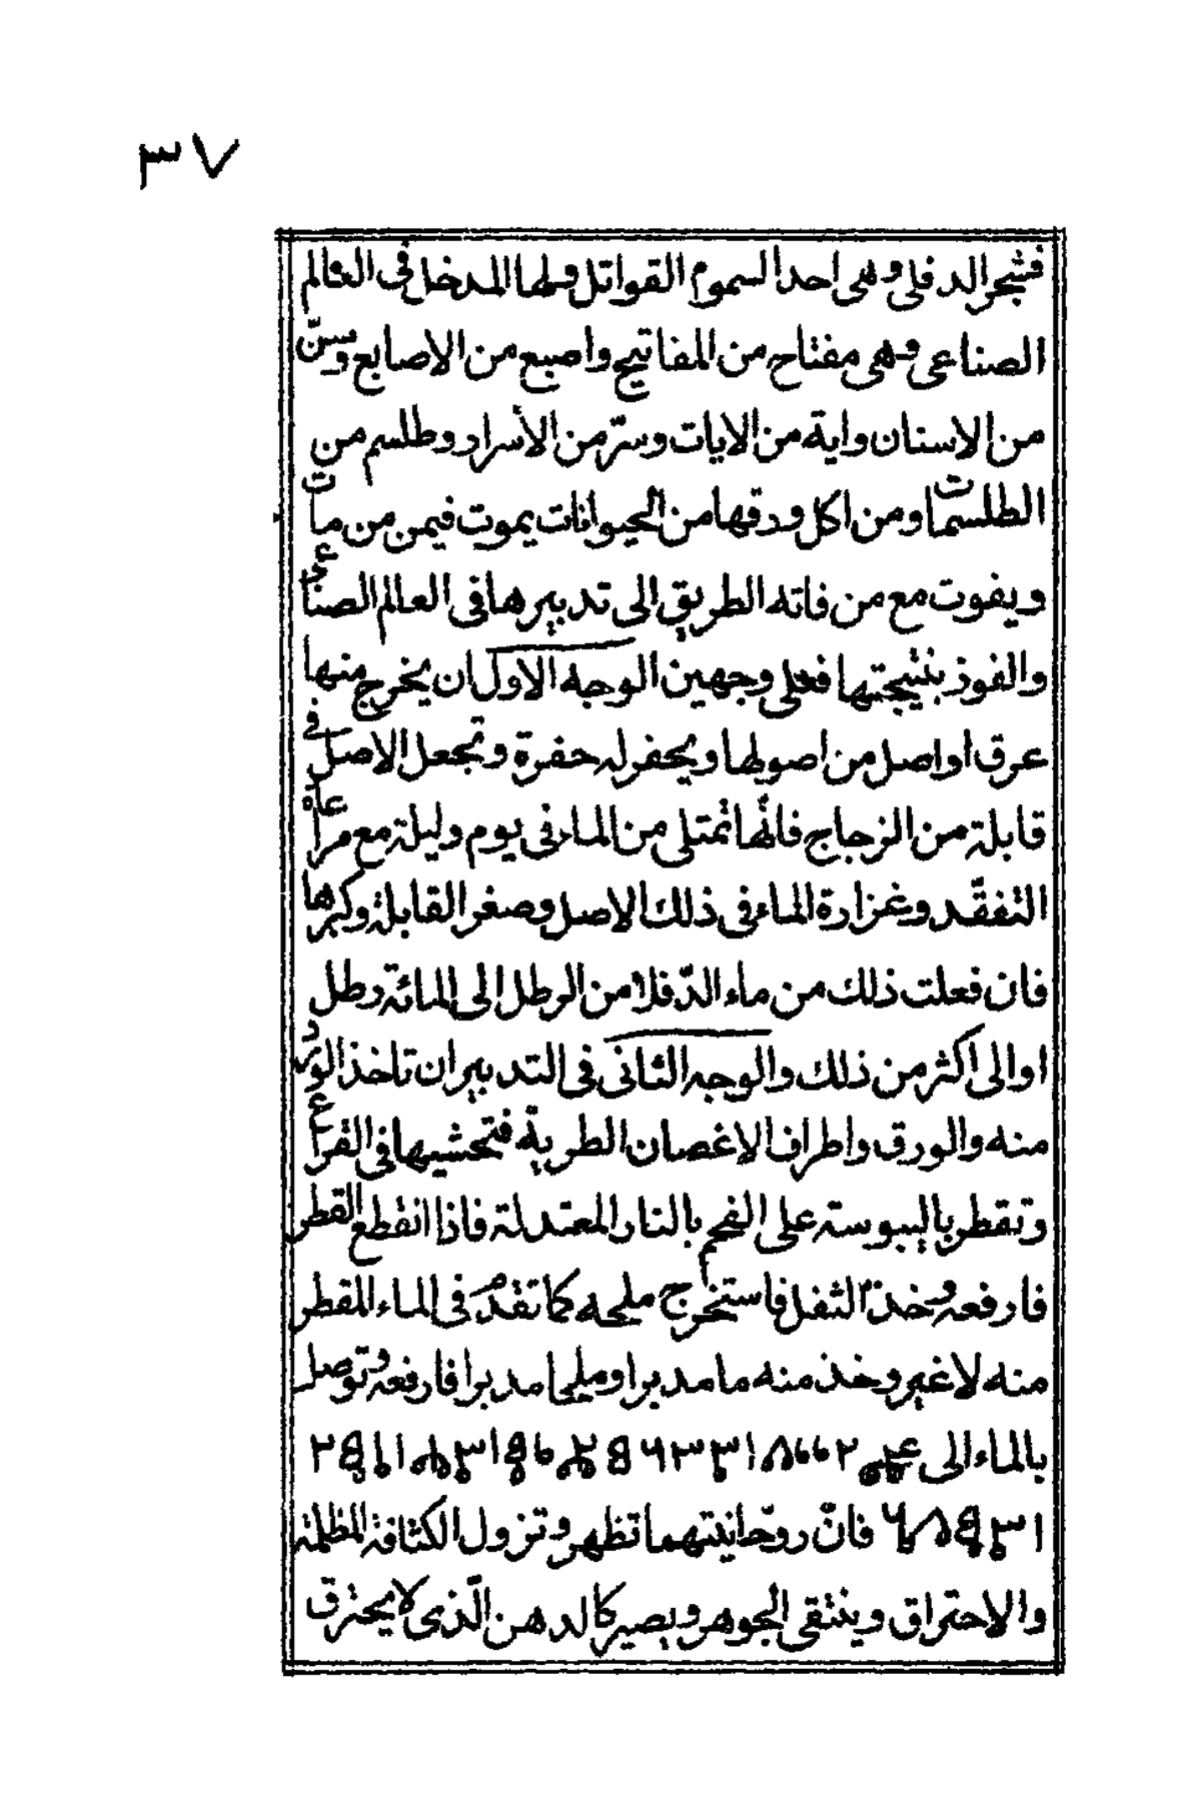 ٣٧
فشجر الدفلى وهى احد السموم القواتل ولها المدخل فى العالم
الصناعى وهى مفتاح من المفاتيح واصبع من الاصابع وسنّ
من الاسنان واية من الايات وسرّ من الأسرار وطلسم من
الطلسمات ومن اكل ورقها من الحيوانات يموت فيمن من مات
ويفوت مع من فاته الطريق الى تدبيرها فى العالم الصناعى
والفوز بنتيجتها فعلى وجهين الوجه الاول ان يخرج منها
عرق او اصل من اصولها ويحفر له حفرة وتجعل الاصل فى
قابلة من الزجاج فانّها تمتلى من الماء فى يوم وليلة مع مراعاة
التفقّد وغزارة الماء فى ذلك الاصل وصغر القابلة وكبرها
فان فعلت ذلك من ماء الدّفلا من الرطل الى المائة رطل
او الى اكثر من ذلك والوجه الثانى فى التدبير ان تاخذ الورد
منه والورق واطراف الاغصان الطريّة فتحشيها فى القرع
وتقطر باليبوسته على الفحم بالنار المعتدلة فاذا انقطع القطر
فارفعه وخذ الثفل فاستخرج مليحه كما تقدّم فى الماء المقطر
منه لا غير وخذ منه ما مدبرا وملحا مدبرا فارفعه وتوصل
بالماء الى
فانّ روحّانيتهما تظهر وتزول الكثافة المظلمة
والاحتراق وينتقى الجوهر ويصير كالدهن الّذى لا يحترق